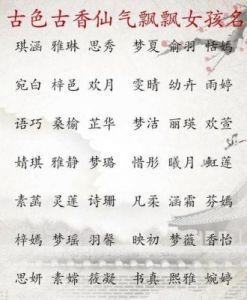 古色古香仙气飘飘女孩名
琪涵 雅琳 思秀 梦夏 俞羽 恬嫣
宛白 梓邑 欢月 雯晴 幼卉 雨婷
语巧 桑榆 芷华 梦洁 丽瑛 欢萱
婧琪 雅静 梦璐 惜彤 曦月 虹莲
素菡 灵莲 诗珊 凡柔 涵霜 芬嫣
梓嫣 梦瑶 羽馨 映初 梦薇 香怡
思妍 素婼 筱凝 书真 熙雅 婉婷